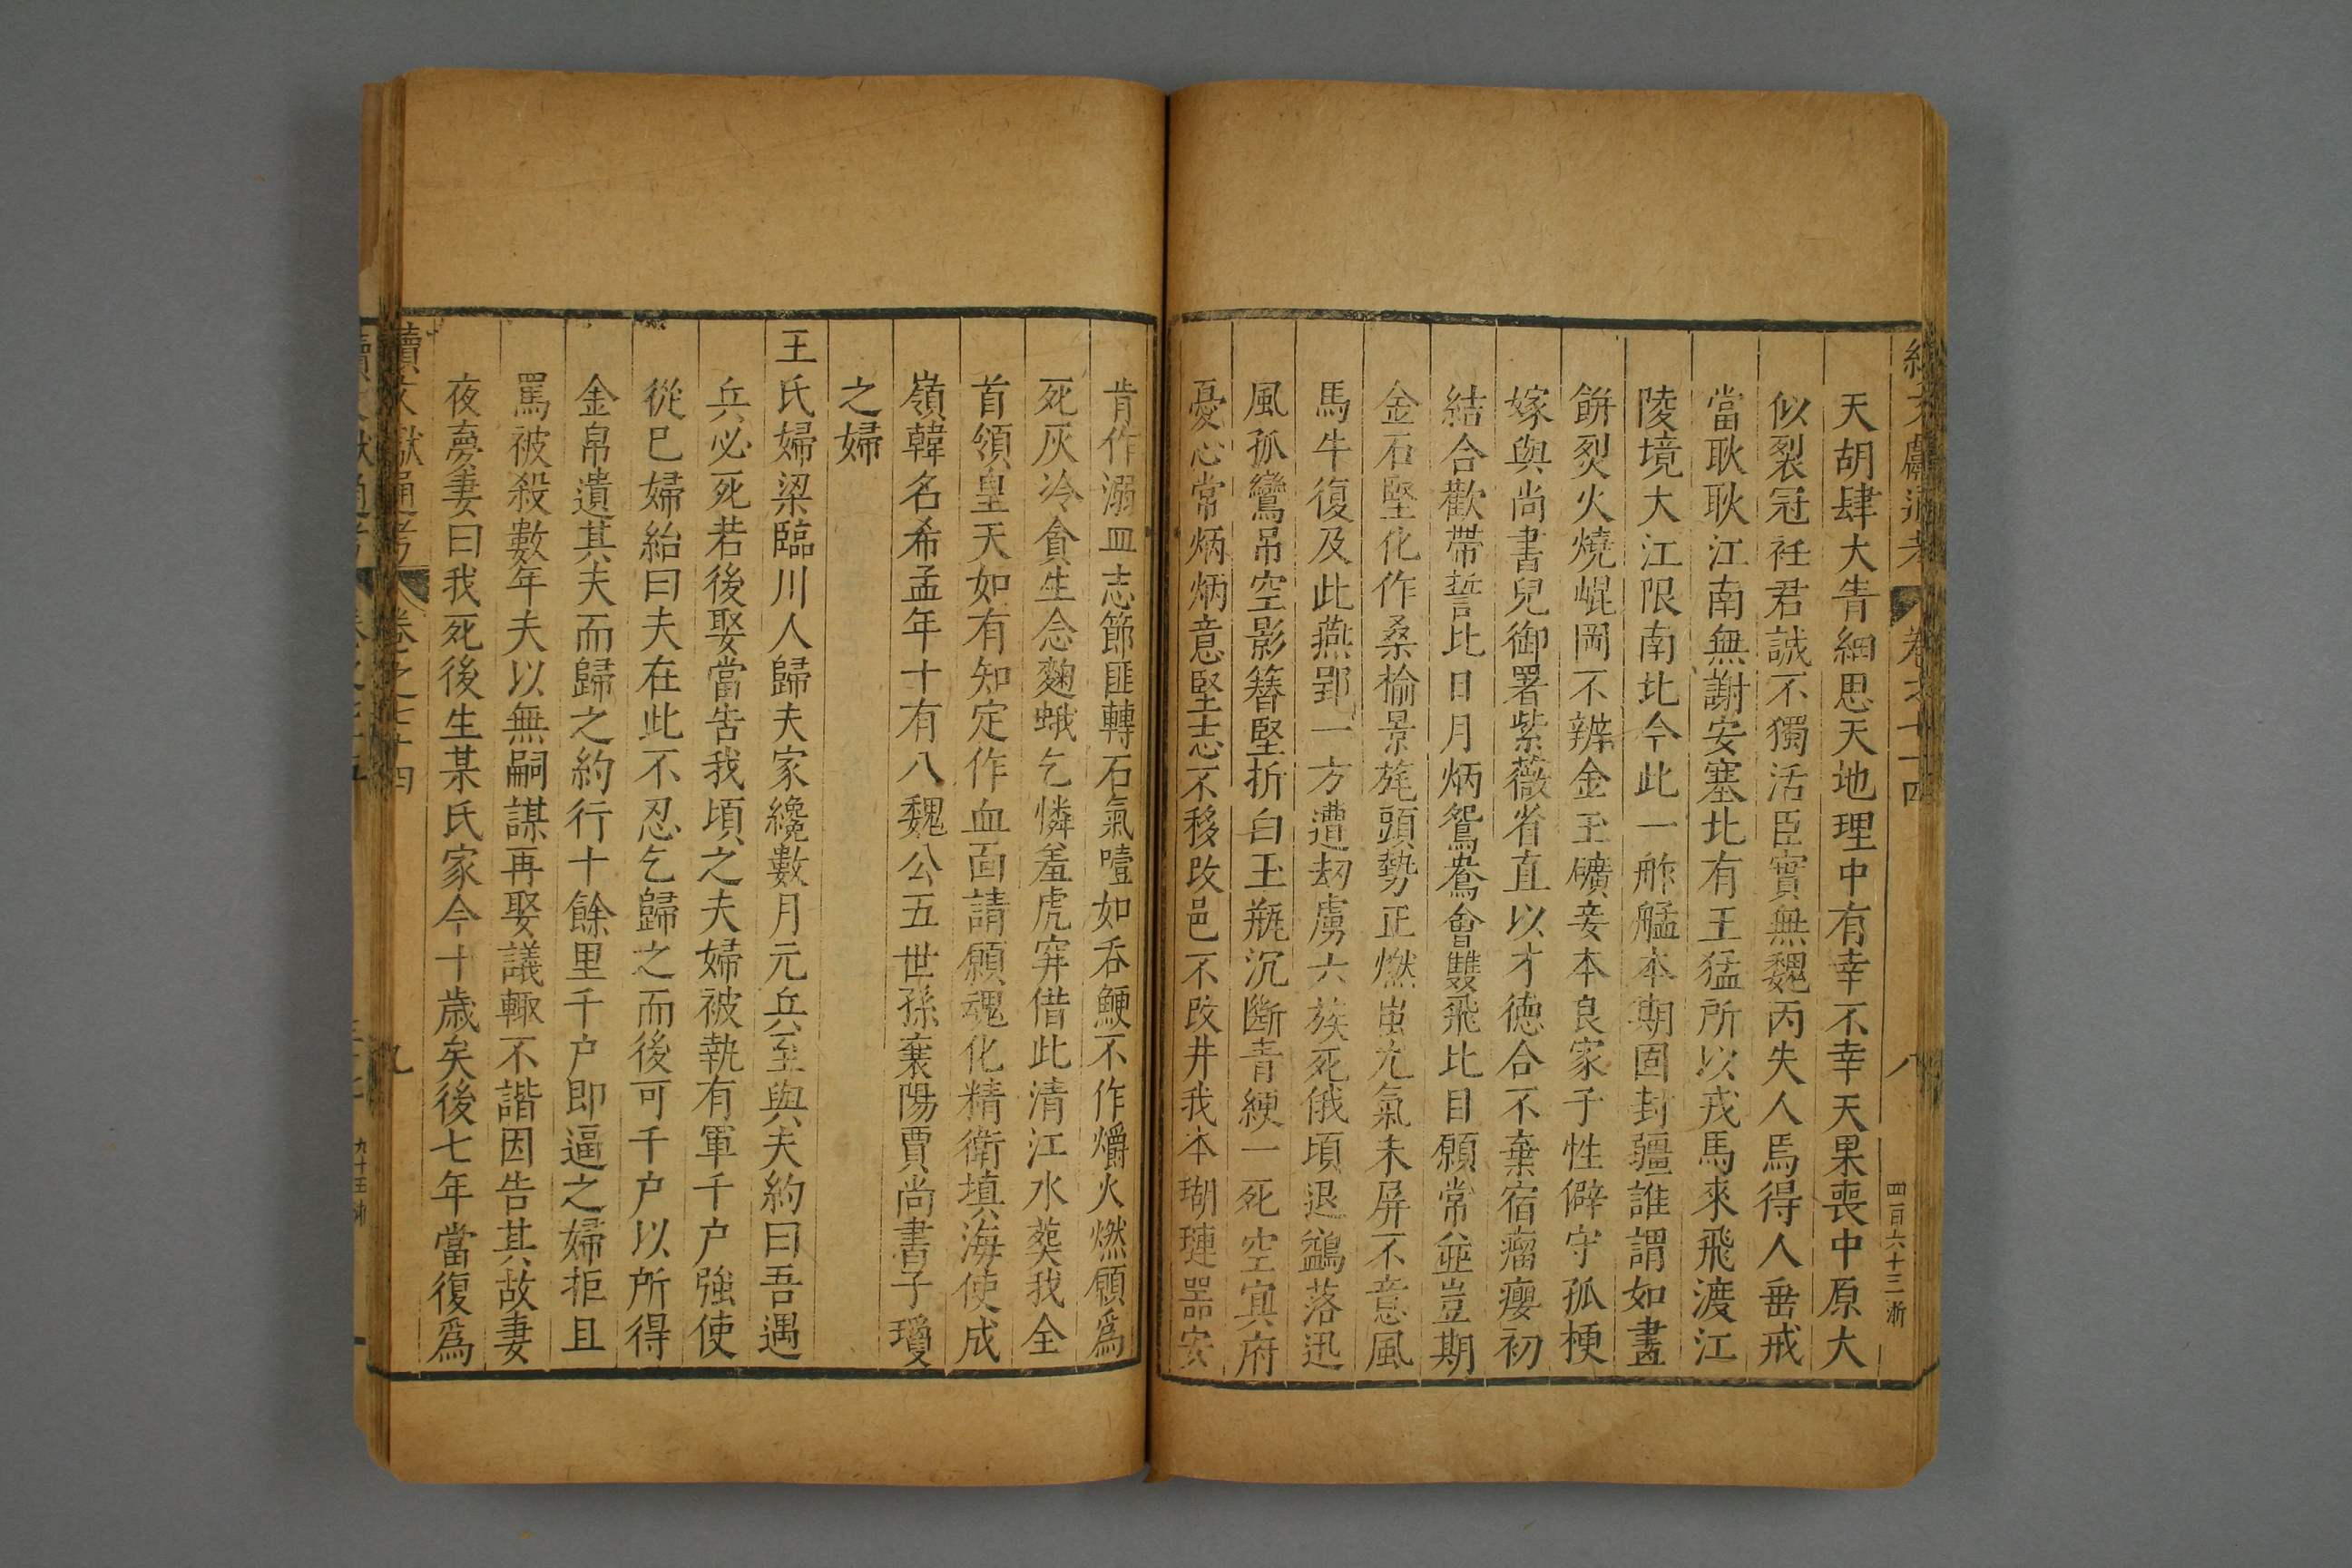 續文獻通考 卷之七十四 八 四百六十三 浙
天胡肆大眚綱思天地理中有幸不幸天果喪中原大
似裂冠衽君誠不獨活臣實無魏丙失人焉得人垂戒
當耿耿江南無謝安塞北有王猛所以戎馬來飛渡江
陵境大江限南北今此一舴艋本期固封疆誰謂如畫
餅烈火燒崐岡不辨金玉礦妾本良家子性僻守孤梗
嫁與尚書兒御署紫薇省直以才德合不棄宿瘤癭初
結合歡帶誓比日月炳鴛鴦會雙飛比目願常並豈期
金石堅化作桑榆景旄頭勢正燃蚩尤氣未屏不意風
馬牛復及此燕郢一方遭刼虜六族死俄頃退鷁落迅
風孤鸞吊空影簪堅折白玉瓶沉斷青綆一死空㝠府
憂心常炳炳意堅志不移改邑不改井我本瑚璉器安
肯作溺皿志節匪轉石氣噎如吞鯁不作爝火燃願爲
死灰冷貪生念麹蛾乞憐羞虎穽借此清江水葬我全
首領皇天如有知定作血面請願魂化精衛填海使成
嶺韓名希孟年十有八魏公五世孫襄陽賈尚書子瓊
之婦
王氏婦梁臨川人歸夫家纔數月元兵至與夫約曰吾遇
兵必死若後娶當告我頃之夫婦被執有軍千户強使
從巳婦紿曰夫在此不忍乞歸之而後可千户以所得
金帛遺其夫而歸之約行十餘里千户即逼之婦拒且
罵被殺數年夫以無嗣謀再娶議輙不諧因告其故妻
夜夢妻曰我死後生某氏家今十歲矣後七年當復爲
續文獻通考 卷之七十四 九